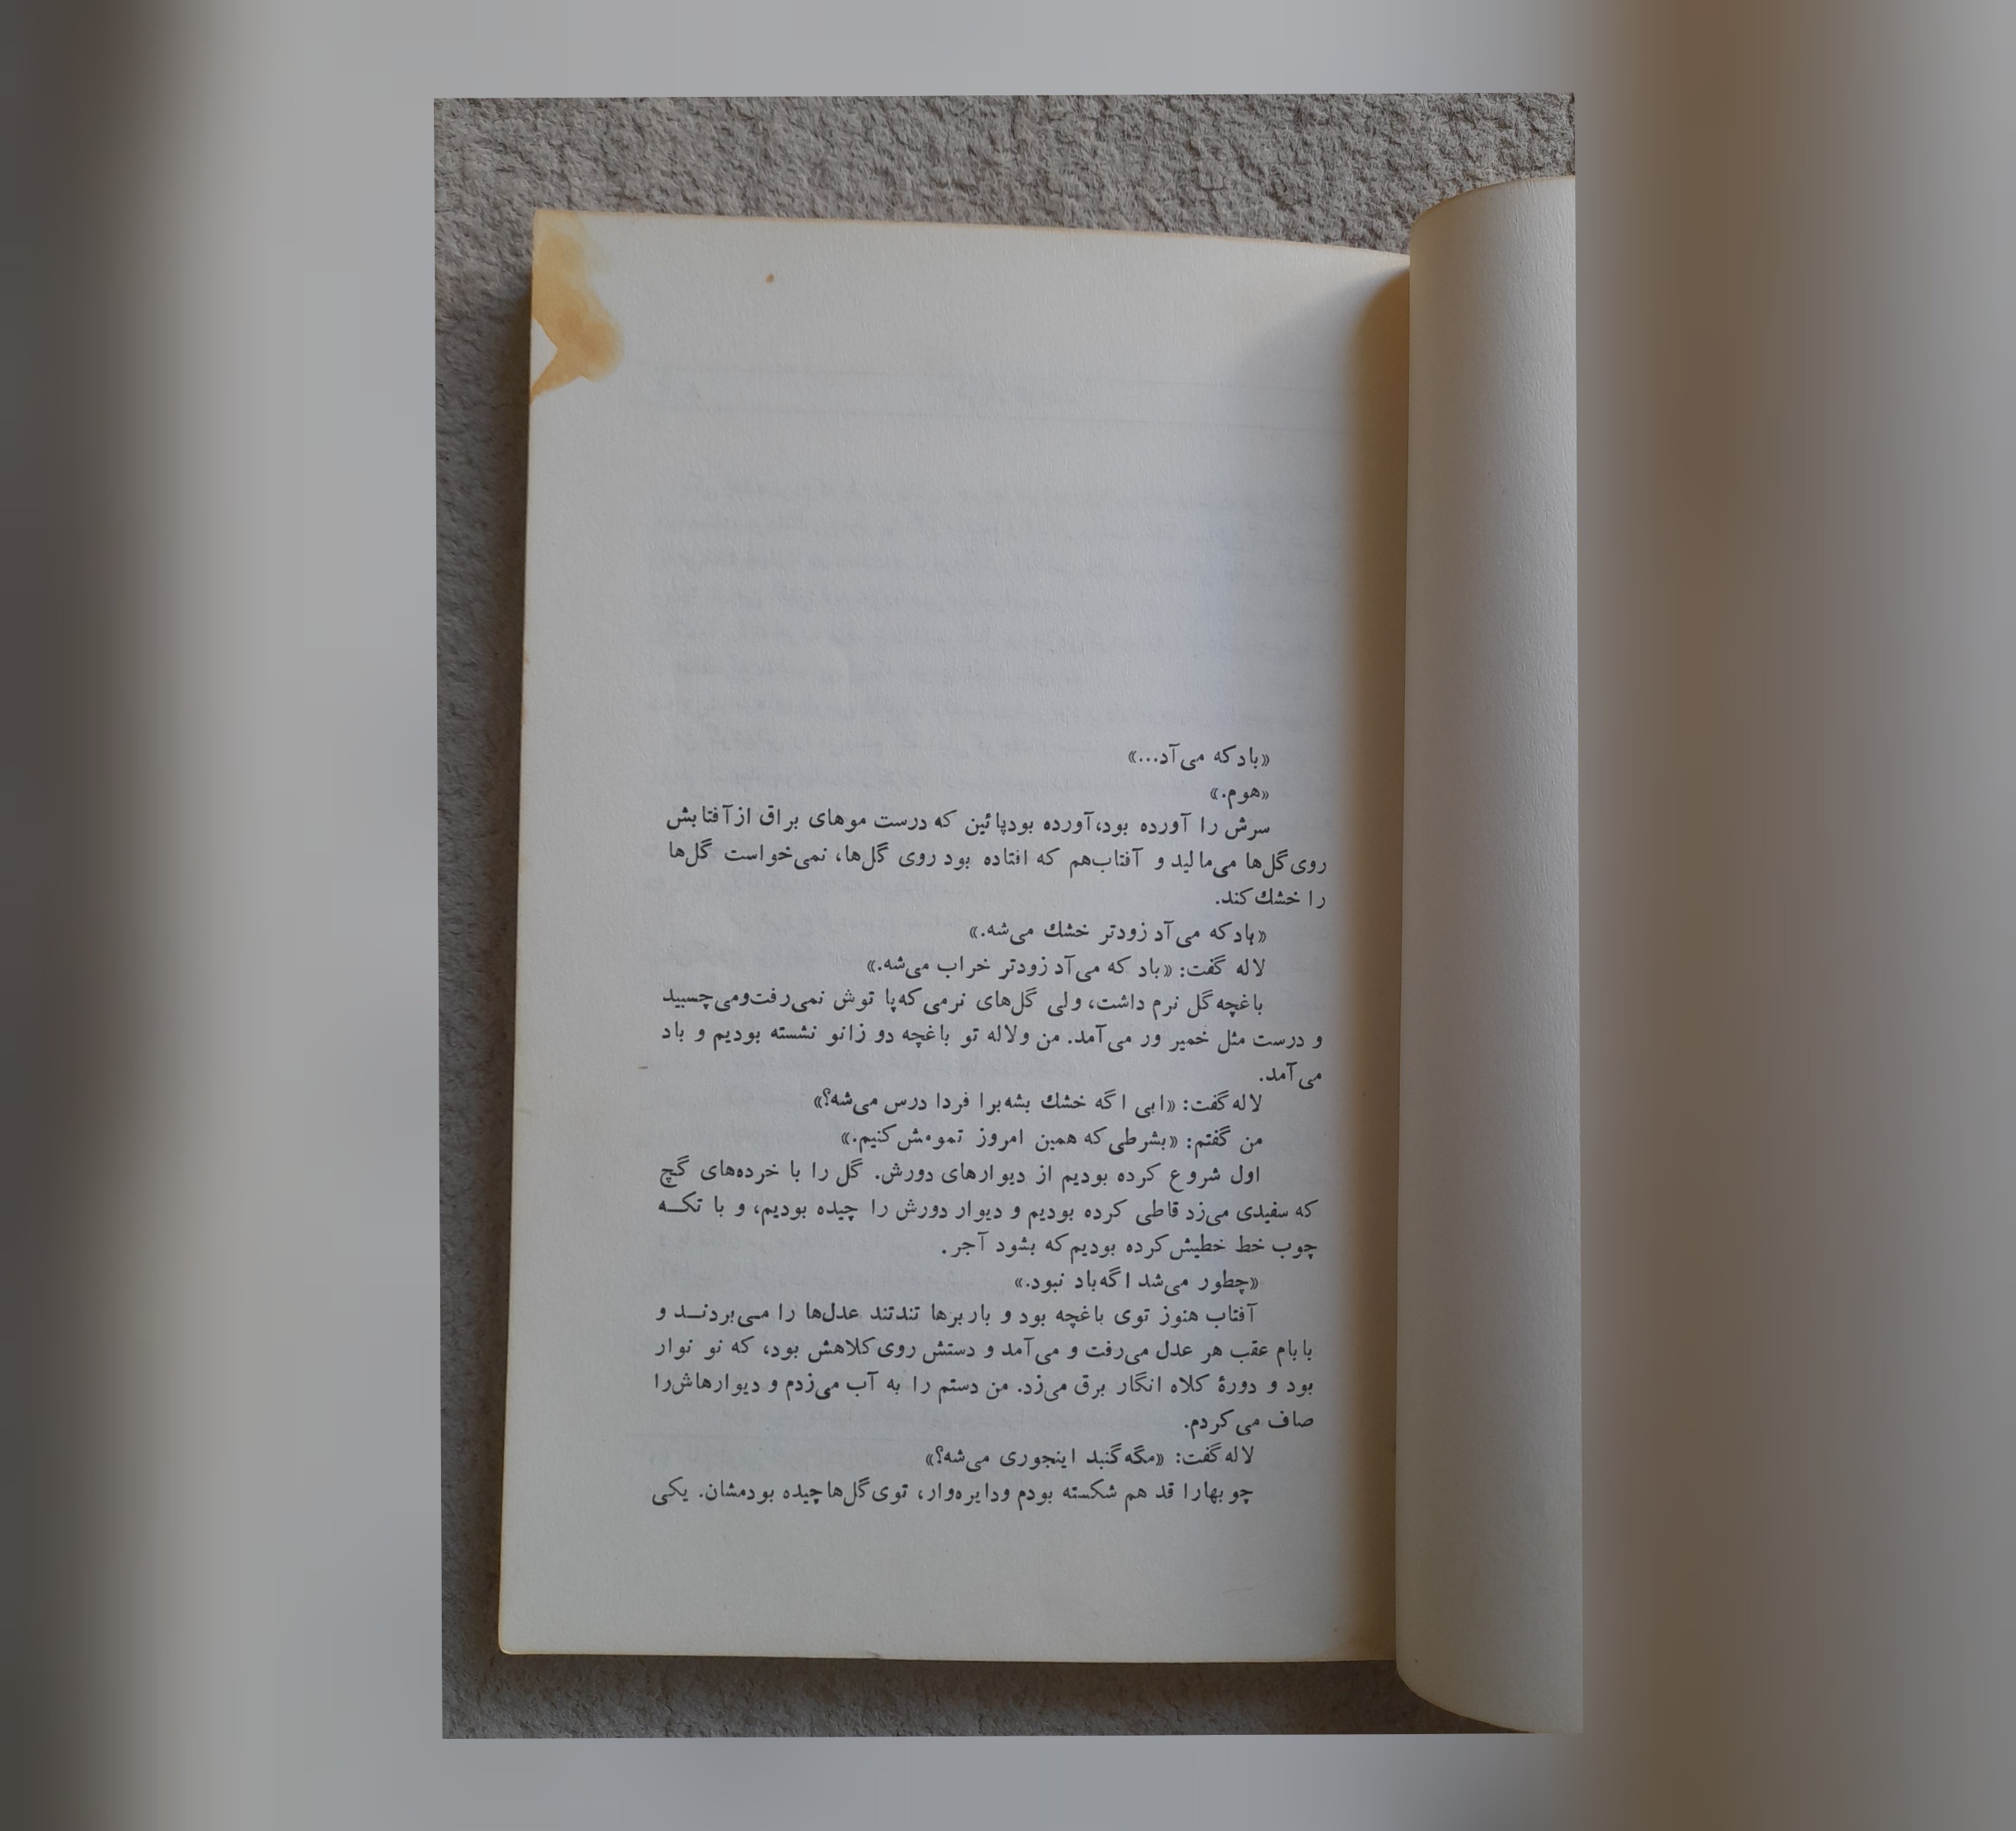 «باد که می‌آد...»
«هوم.»
سرش را آورده بود،آورده بودپائین که درست موهای براق ازآفتابش
روی گل‌ها می‌مالید و آفتاب‌هم که افتاده بود روی گل‌ها، نمی‌خواست گل‌ها
را خشك کند.
«بادکه می‌آد زودتر خشك می‌شه.»
لاله گفت: «باد که می‌آد زودتر خراب می‌شه.»
باغچه گل نرم داشت، ولی گل‌های نرمی که پا توش نمی‌رفت‌ومی‌چسبید
و درست مثل خمیر ور می‌آمد. من ولاله تو باغچه دو زانو نشسته بودیم و باد
می‌آمد.
لاله گفت: «ابی اگه خشك بشه برا فردا درس می‌شه؟»
من گفتم: «بشرطی که همین امروز تمومش کنیم.»
اول شروع کرده بودیم از دیوارهای دورش. گل را با خرده‌های گچ
که سفیدی می‌زد قاطی کرده بودیم و دیوار دورش را چیده بودیم، و با تکــه
چوب خط خطیش کرده بودیم که بشود آجر.
«چطور می‌شد اگه باد نبود.»
آفتاب هنوز توی باغچه بود و باربرها تندتند عدل‌ها را مـی‌بردنــد و
بابام عقب هر عدل می‌رفت و می‌آمد و دستش روی کلاهش بود، که نو نوار
بود و دورهٔ کلاه انگار برق می‌زد. من دستم را به آب می‌زدم و دیوارهاش‌را
صاف می‌کردم.
لاله گفت: «مگه گنبد اینجوری می‌شه؟»
چوبهارا قد هم شکسته بودم ودایره‌وار، توی گل‌ها چیده بودمشان. یکی